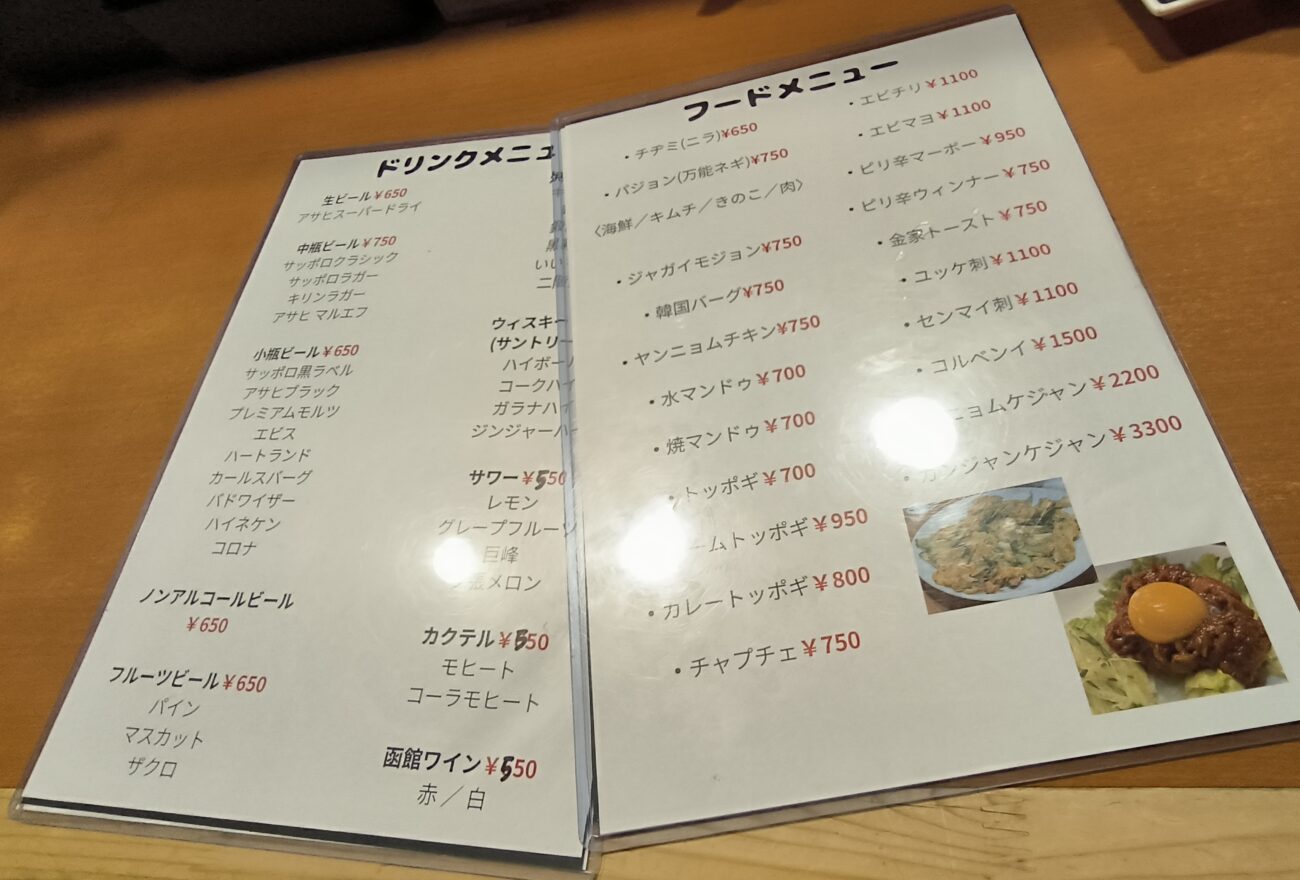 ドリンクメニュ
生ビール¥650
アサヒスーパードライ
中瓶ビール¥750
サッポロクラシック
サッポロラガー
キリンラガー
アサヒ マルエフ
小瓶ビール¥650
サッポロ黒ラベル
アサヒブラック
プレミアムモルツ
エビス
ハートランド
カールスバーグ
バドワイザー
ハイネケン
コロナ
ノンアルコールビール
¥650
フルーツビール¥650
パイン
マスカット
ザクロ
いい
ウィスキー
(サントリー
ハイボー
コークハイ
ガラナハイ
ジンジャーハ
サワー¥550
レモン
グレープフルーツ
巨峰
張メロン
カクテル¥550
モヒート
コーラモヒート
函館ワイン¥550
赤／白
フードメニュー
・チヂミ(ニラ)¥650
・パジョン(万能ネギ)¥750
〈海鮮／キムチ／きのこ／肉〉
・ジャガイモジョン¥750
・韓国バーグ¥750
・ヤンニョムチキン¥750
・水マンドゥ¥700
・焼マンドゥ¥700
・トッポギ¥700
ームトッポギ¥950
・カレートッポギ¥800
・チャプチェ¥750
・エビチリ¥1100
・エビマヨ¥1100
・ピリ辛マーボー¥950
・ピリ辛ウィンナー¥750
・金家トースト¥750
・ユッケ刺¥1100
・センマイ刺¥1100
・コルベンイ¥1500
ニョムケジャン¥2200
・カンジャンケジャン¥3300